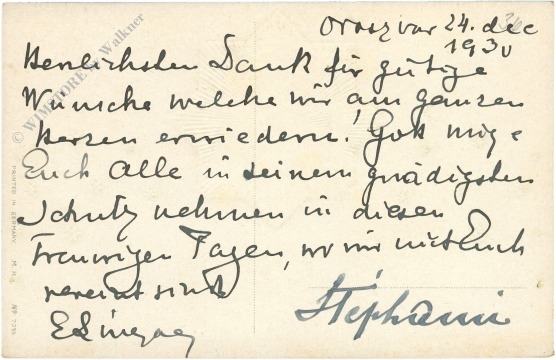 Oroszvar 24. dec
1930
Herzlichsten Dank für gütige
Wünsche welche wir, am ganzen
Herzen erwiedern! Gott möge
Euch Alle in seinem gnädigsten
Schutz nehmen in diesen
Traurigen Tagen, wo wir mit Euch
vereint sind
ELónyay
Stéphanie
© WIMMORE Walkner
PRINTED IN GERMANY